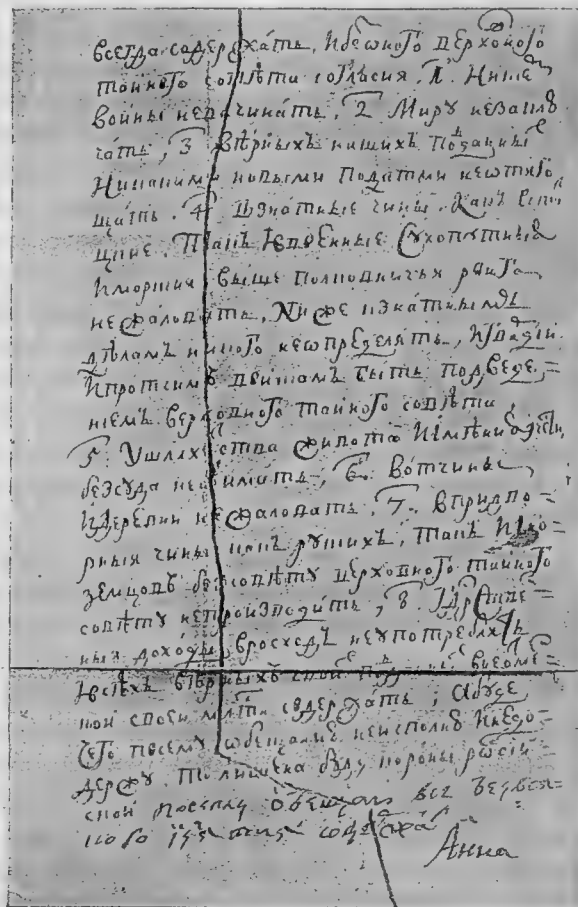 всегда содержать, и без оного верховного
тайного совѣта согласия. 1. Ни с кем
войны не начинать, 2 Миру не заклю
чать, 3 вѣрных наших поданных
никакими новыми податми не отяго
щать. 4. В знатные чины, как в стац
цкие, так и в военные сухопутные
и морския выше полковничья ранга
не жаловать, ниже к знатным
дѣлам никого не определять, и гвардии
и протчим войскам быть под веде=
нием верховного тайного совѣта,
5 У шляхетства живота и имѣния и чести
без суда не отимать, 6. Вотчины
и деревни не жаловать, 7. в придво=
рныя чины как руских, так и ино=
земцов без совѣту верховного тайного
совѣту не производить, 8. Государстве=
ныя доходы в росход не употреблять
и всѣх вѣрных своих поданных в неотме=
ной своей милости содержать, А буде
чего по сему обещанию не исполню и не додо=
держу, то лишена буду короны росий=
ской по сему обещаюс все без всякого
содержать
Анна